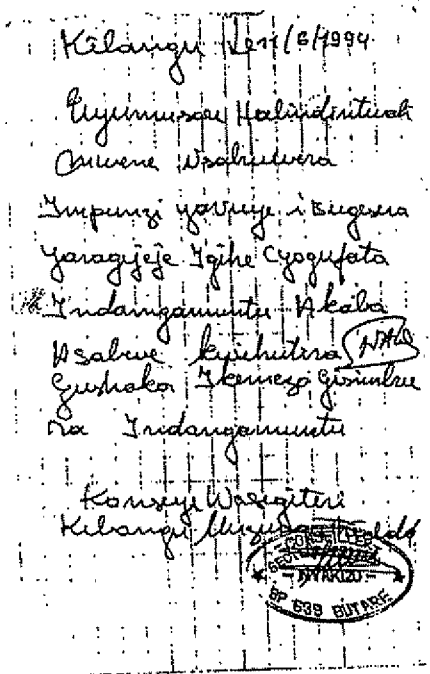 Kibangu le 11/6/1994
Uyumusore Habindintwali
mwene Nsabimana
Impunzi yavuye i Bugesera
Yaragejeje Igihe Cyogufata
Indangamuntu Akaba
Asabwe kwihutira
Gushaka Ikemeza gisimbu
na Indangamuntu
Konseye Wasegiteri
Kibangu
CONSEILLER
NYAKIZU
BP 639 BUTARE